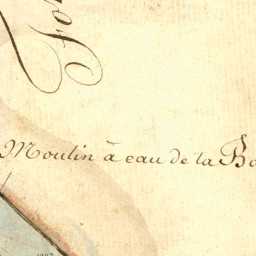 Fo
Moulin à eau de la Bo